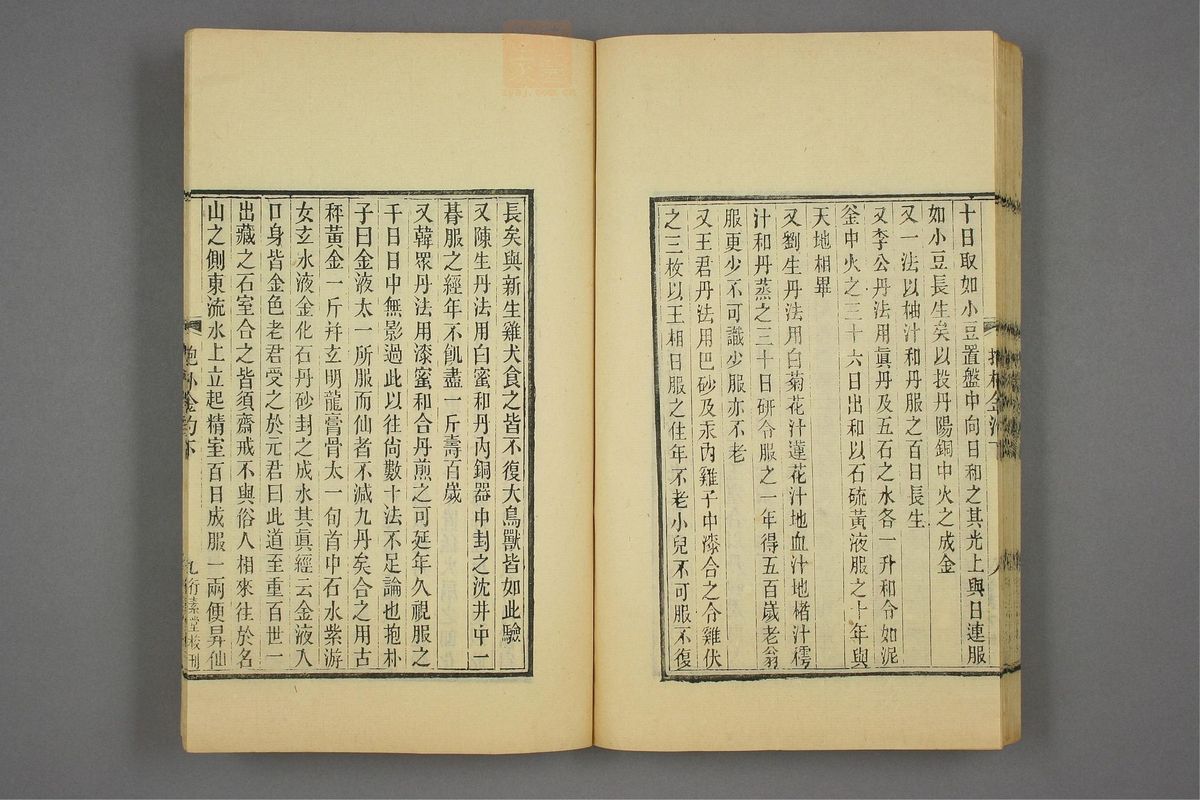 十日取如小豆置盤中向日和之其光上與日連服
如小豆長生矣以投丹陽銅中火之成金
又一法以柚汁和丹服之百日長生
又李公丹法用眞丹及五石之水各一升和令如泥
釜中火之三十六日出和以石硫黃液服之十年與
天地相畢
又劉生丹法用白菊花汁蓮花汁地血汁地楮汁樗
汁和丹蒸之三十日研合服之一年得五百歲老翁
服更少不可識少服亦不老
又王君丹法用巴砂及汞內雞子中漆合之令雞伏
之三枚以王相日服之住年不老小兒不可服不復
長矣與新生雞犬食之皆不復大鳥獸皆如此驗
又陳生丹法用白蜜和丹內銅器中封之沈井中一
朞服之經年不飢盡一斤壽百歲
又韓眾丹法用漆蜜和合丹煎之可延年久視服之
千日日中無影過此以往尙數十法不足論也抱朴
子曰金液太一所服而仙者不減九丹矣合之用古
秤黃金一斤幷玄明龍膏骨太一旬首中石水紫游
女玄水液金化石丹砂封之成水其眞經云金液入
口身皆金色老君受之於元君曰此道至重百世一
出藏之石室合之皆須齋戒不與俗人相來往於名
山之側東流水上立起精室百日成服一兩便昇仙